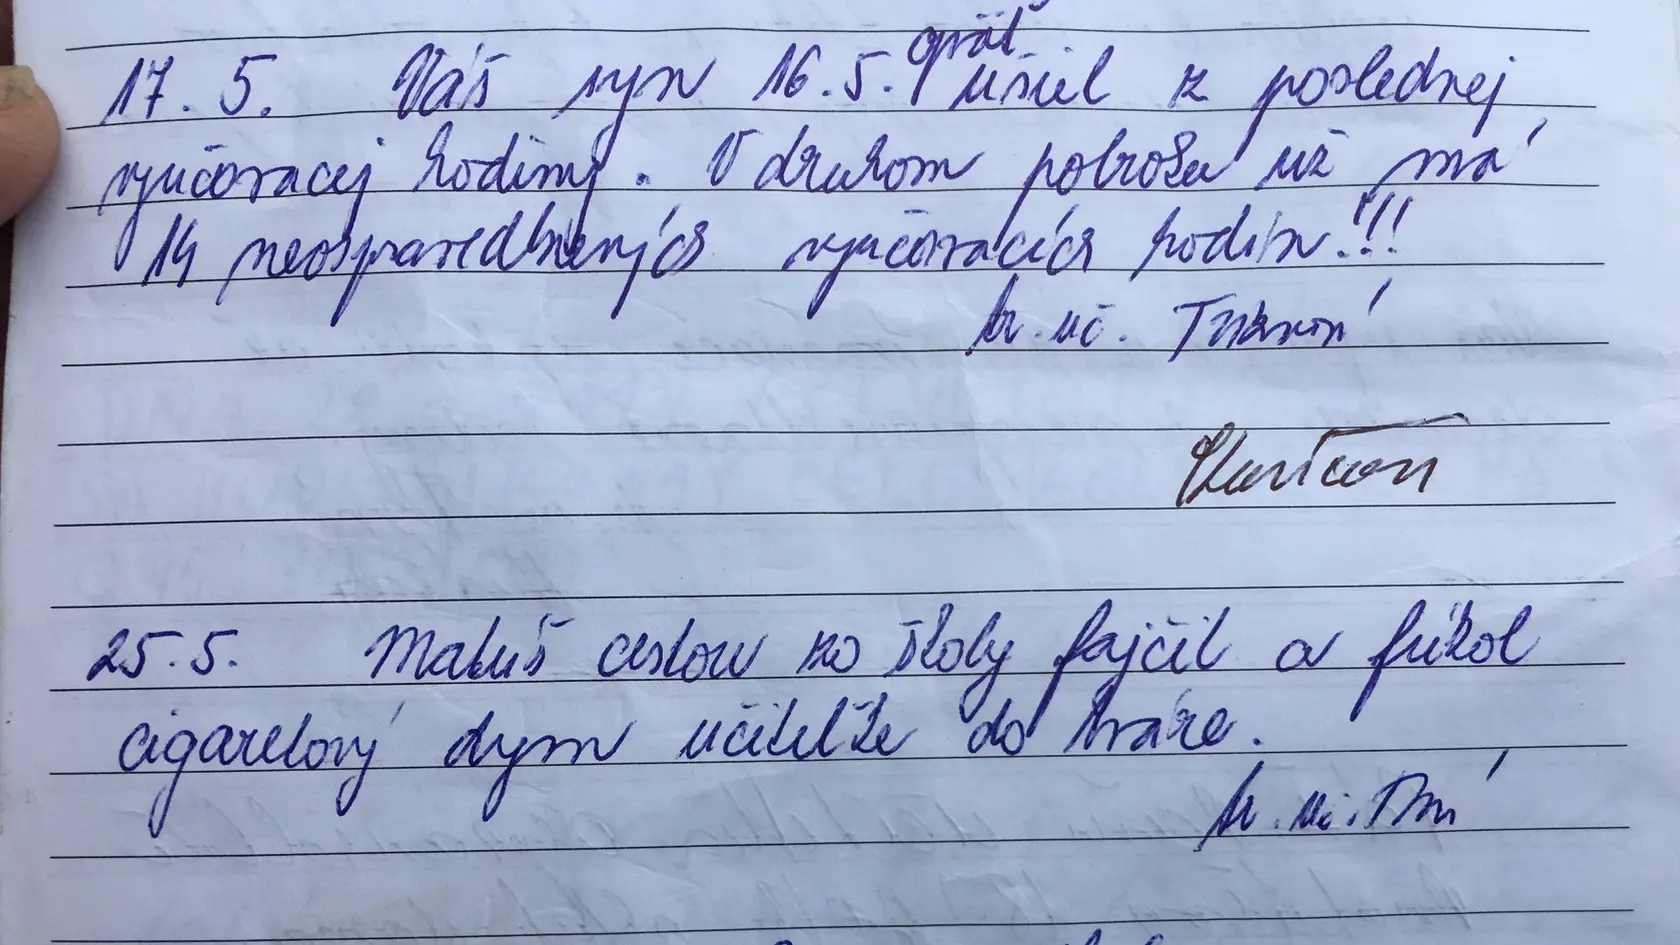 opäť
17. 5. Váš syn 16. 5. ušiel z poslednej
vyučovacej hodiny. V druhom polroku už má
14 neospravedlnených vyučovacích hodín!!!
tr. uč.
25. 5. Matúš cestou zo školy fajčil a fúkol
cigaretový dym učiteľke do tváre.
tr. uč.